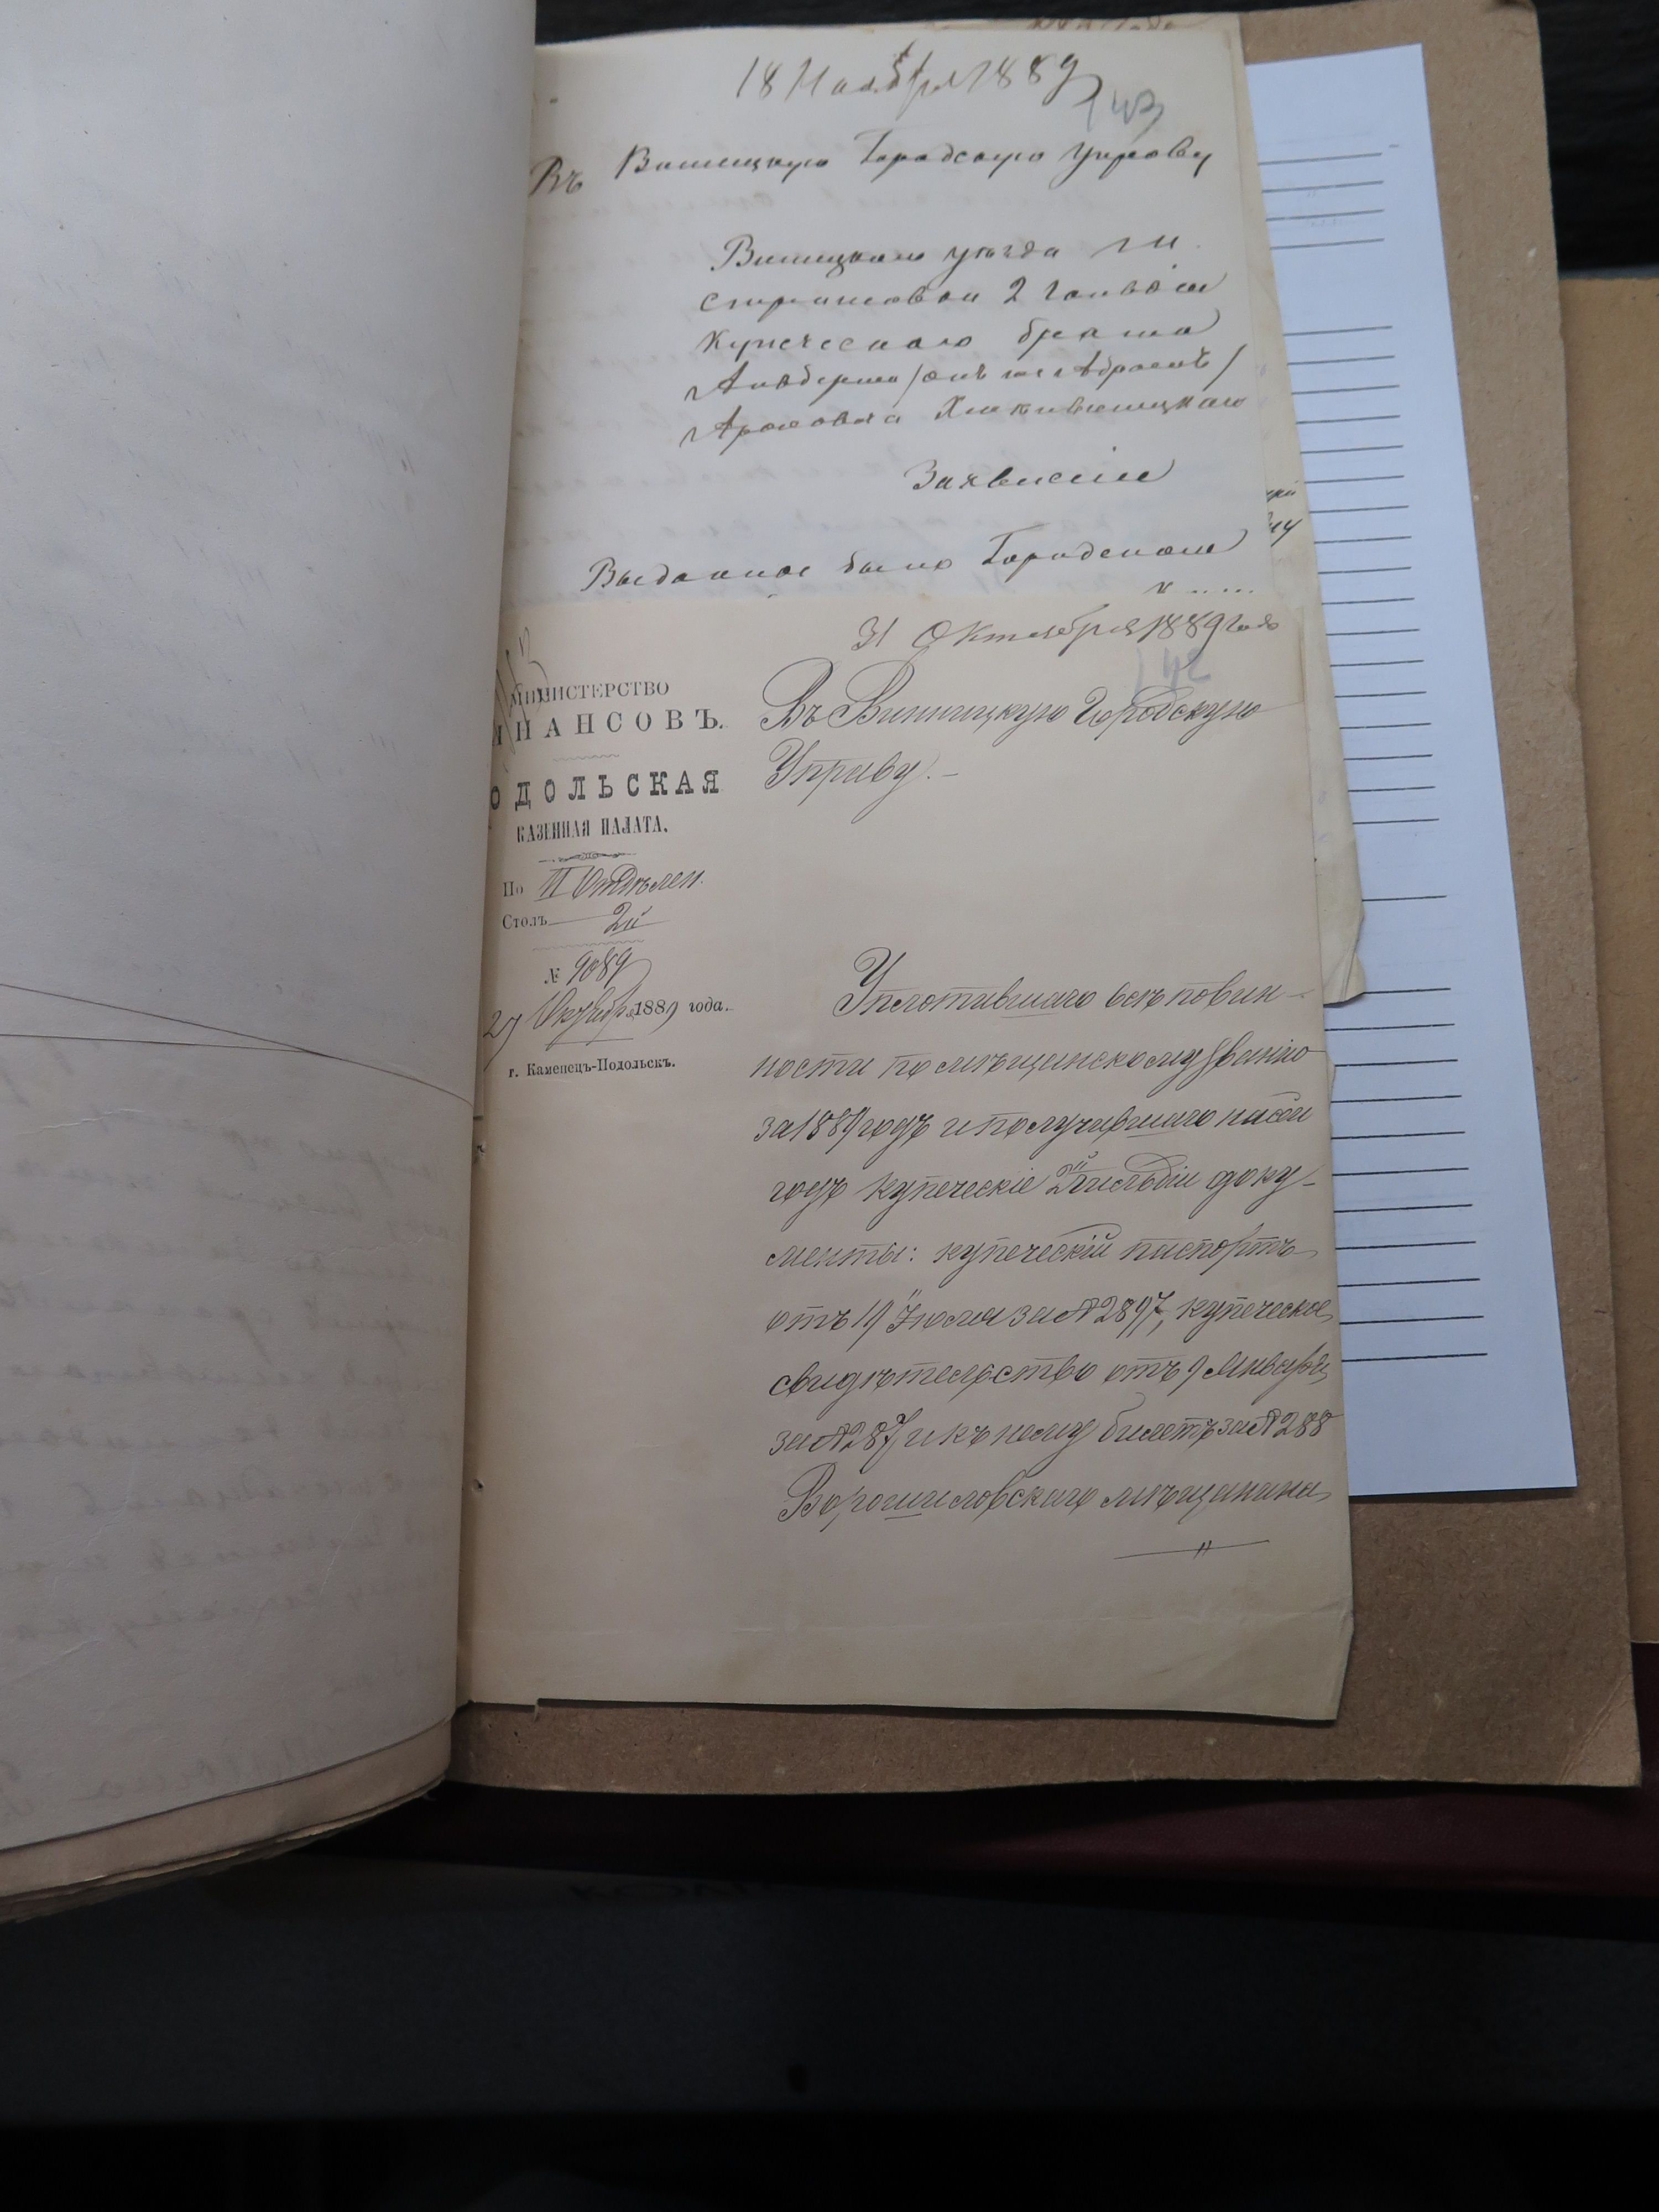 18 Ноября 1889
143
Въ Винницкую Городскую Управу
Винницкаго уѣзда м.
2 гильдіи
Купеческаго брата
/онъ же Абрамъ/
Ароновича
Заявленіе
Выданное было Городскою
31 Октября 1889 года
142
МИНИСТЕРСТВО
ИНАНСОВЪ.
ОДОЛЬСКАЯ
КАЗЕННАЯ ПАЛАТА.
По II Отдѣлен.
Столъ 2й
№ 9089
27 Октября 1889 года.
г. Каменецъ-Подольскъ.
Въ Винницкую Городскую
Управу.—
Уплотившаго всѣ повин-
ности по мѣщанскому званію
за 1889 годъ и получившаго на сей
годъ купеческіе 2й гильдіи доку-
менты: купеческій паспортъ
отъ 19 Іюля за № 2897, купеческое
свидѣтельство отъ 9 Января
за № 287 и къ нему билетъ за № 288
Ворошиловскаго мѣщанина